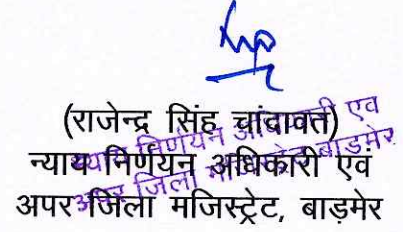 (राजेन्द्र सिंह चांदावत)
न्याय निर्णयन अधिकारी एवं
अपर जिला मजिस्ट्रेट, बाड़मेर
न्याय निर्णयन अधिकारी एव
अपर जिला मजिस्ट्रेट बाड़मेर